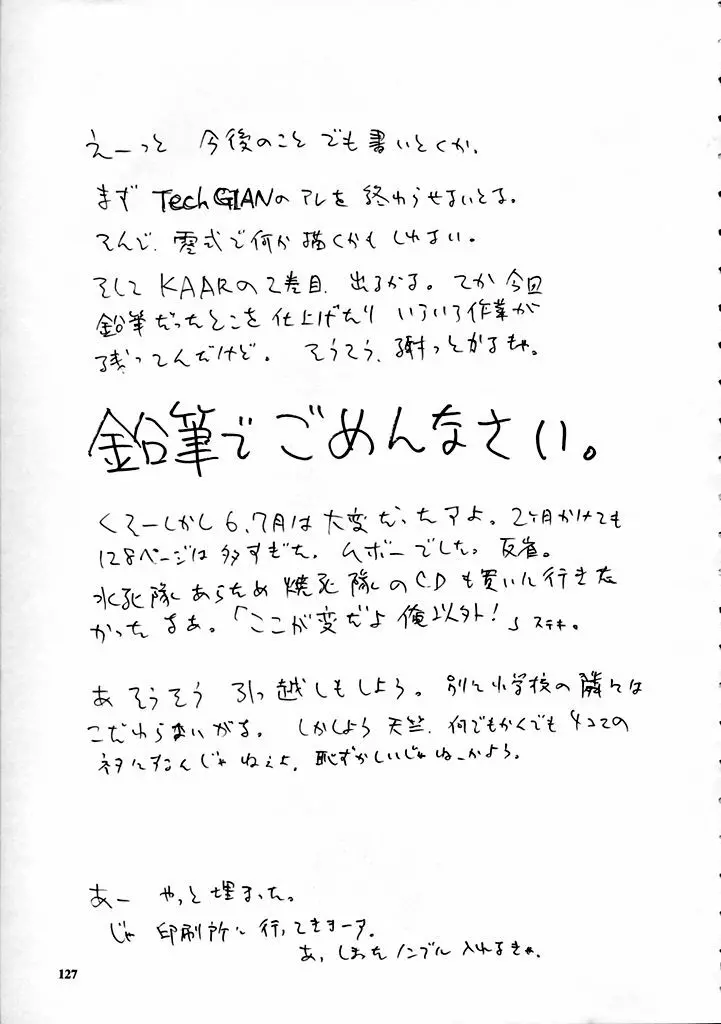 えーっと 今後のこと でも書いとくか.
まず TechGIANの アレを 終わらせないとな。
そんで、零式で何か描くかもしれない。
そして KAARの2巻目. 出るかな。 てか今回
鉛筆だったとこを 仕上げたり いろいろ作業が
残ってんだけど。 そうそう. 謝っとかなきゃ。
鉛筆で ごめんなさい。
くそーしかし 6,7月は 大変だったすよ。2ヶ月かけても
128ページは多すぎた。ムボーでした。反省。
水死隊あらため 焼死隊のCDも買いに行きた
かったなあ。「ここが変だよ 俺以外!」ステキ。
あ そうそう 引っ越しもしよう。別に小学校の隣には
こだわらないがな。 しかしよう 天竺. 何でもかくでも 4コマの
ネタにすんじゃねえよ. 恥ずかしいじゃねーかよう。
あー やっと埋まった。
じゃ 印刷所に 行ってきまーす.
あ, しまった ノンブル 入れなきゃ.
127